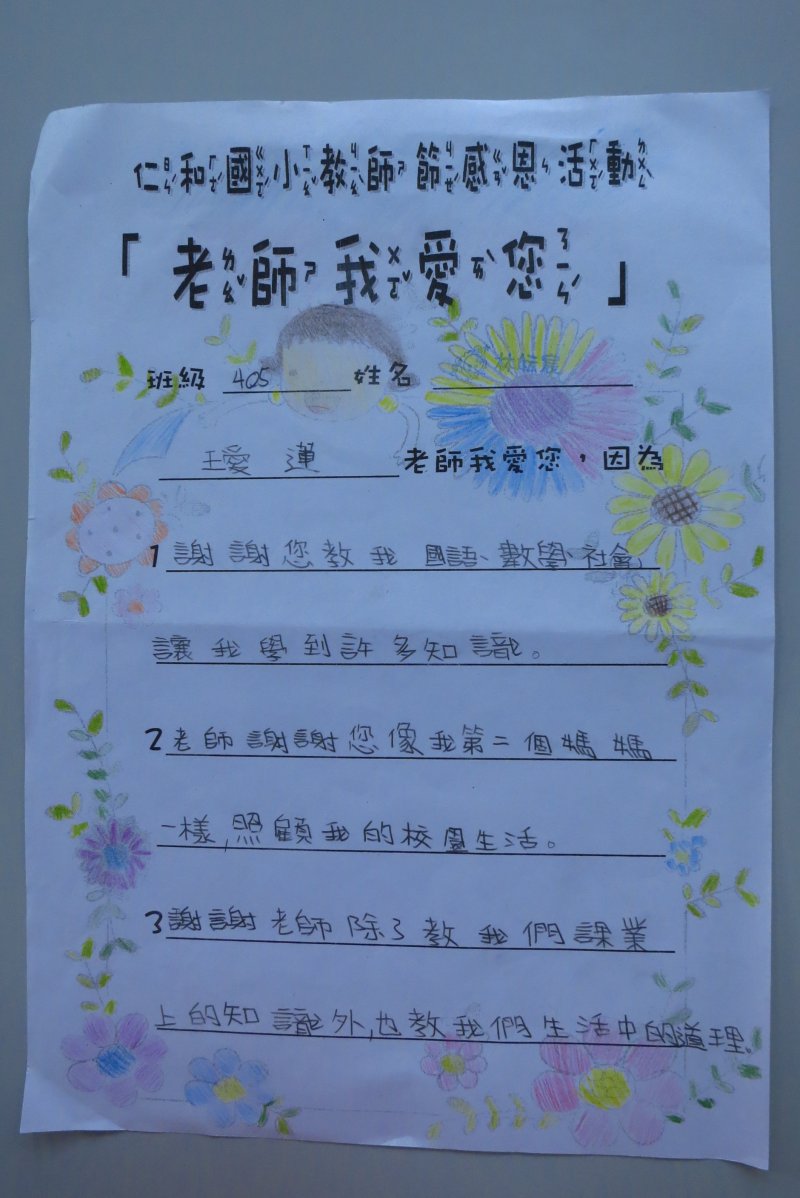 仁和國小教師節感恩活動
「老師我愛您」
班級 405 姓名 林
璦運 老師我愛您，因為
1 謝謝您教我國語、數學、社會,
讓我學到許多知識。
2 老師謝謝您像我第二個媽媽
一樣,照顧我的校園生活。
3 謝謝老師除了教我們課業
上的知識外,也教我們生活中的道理。